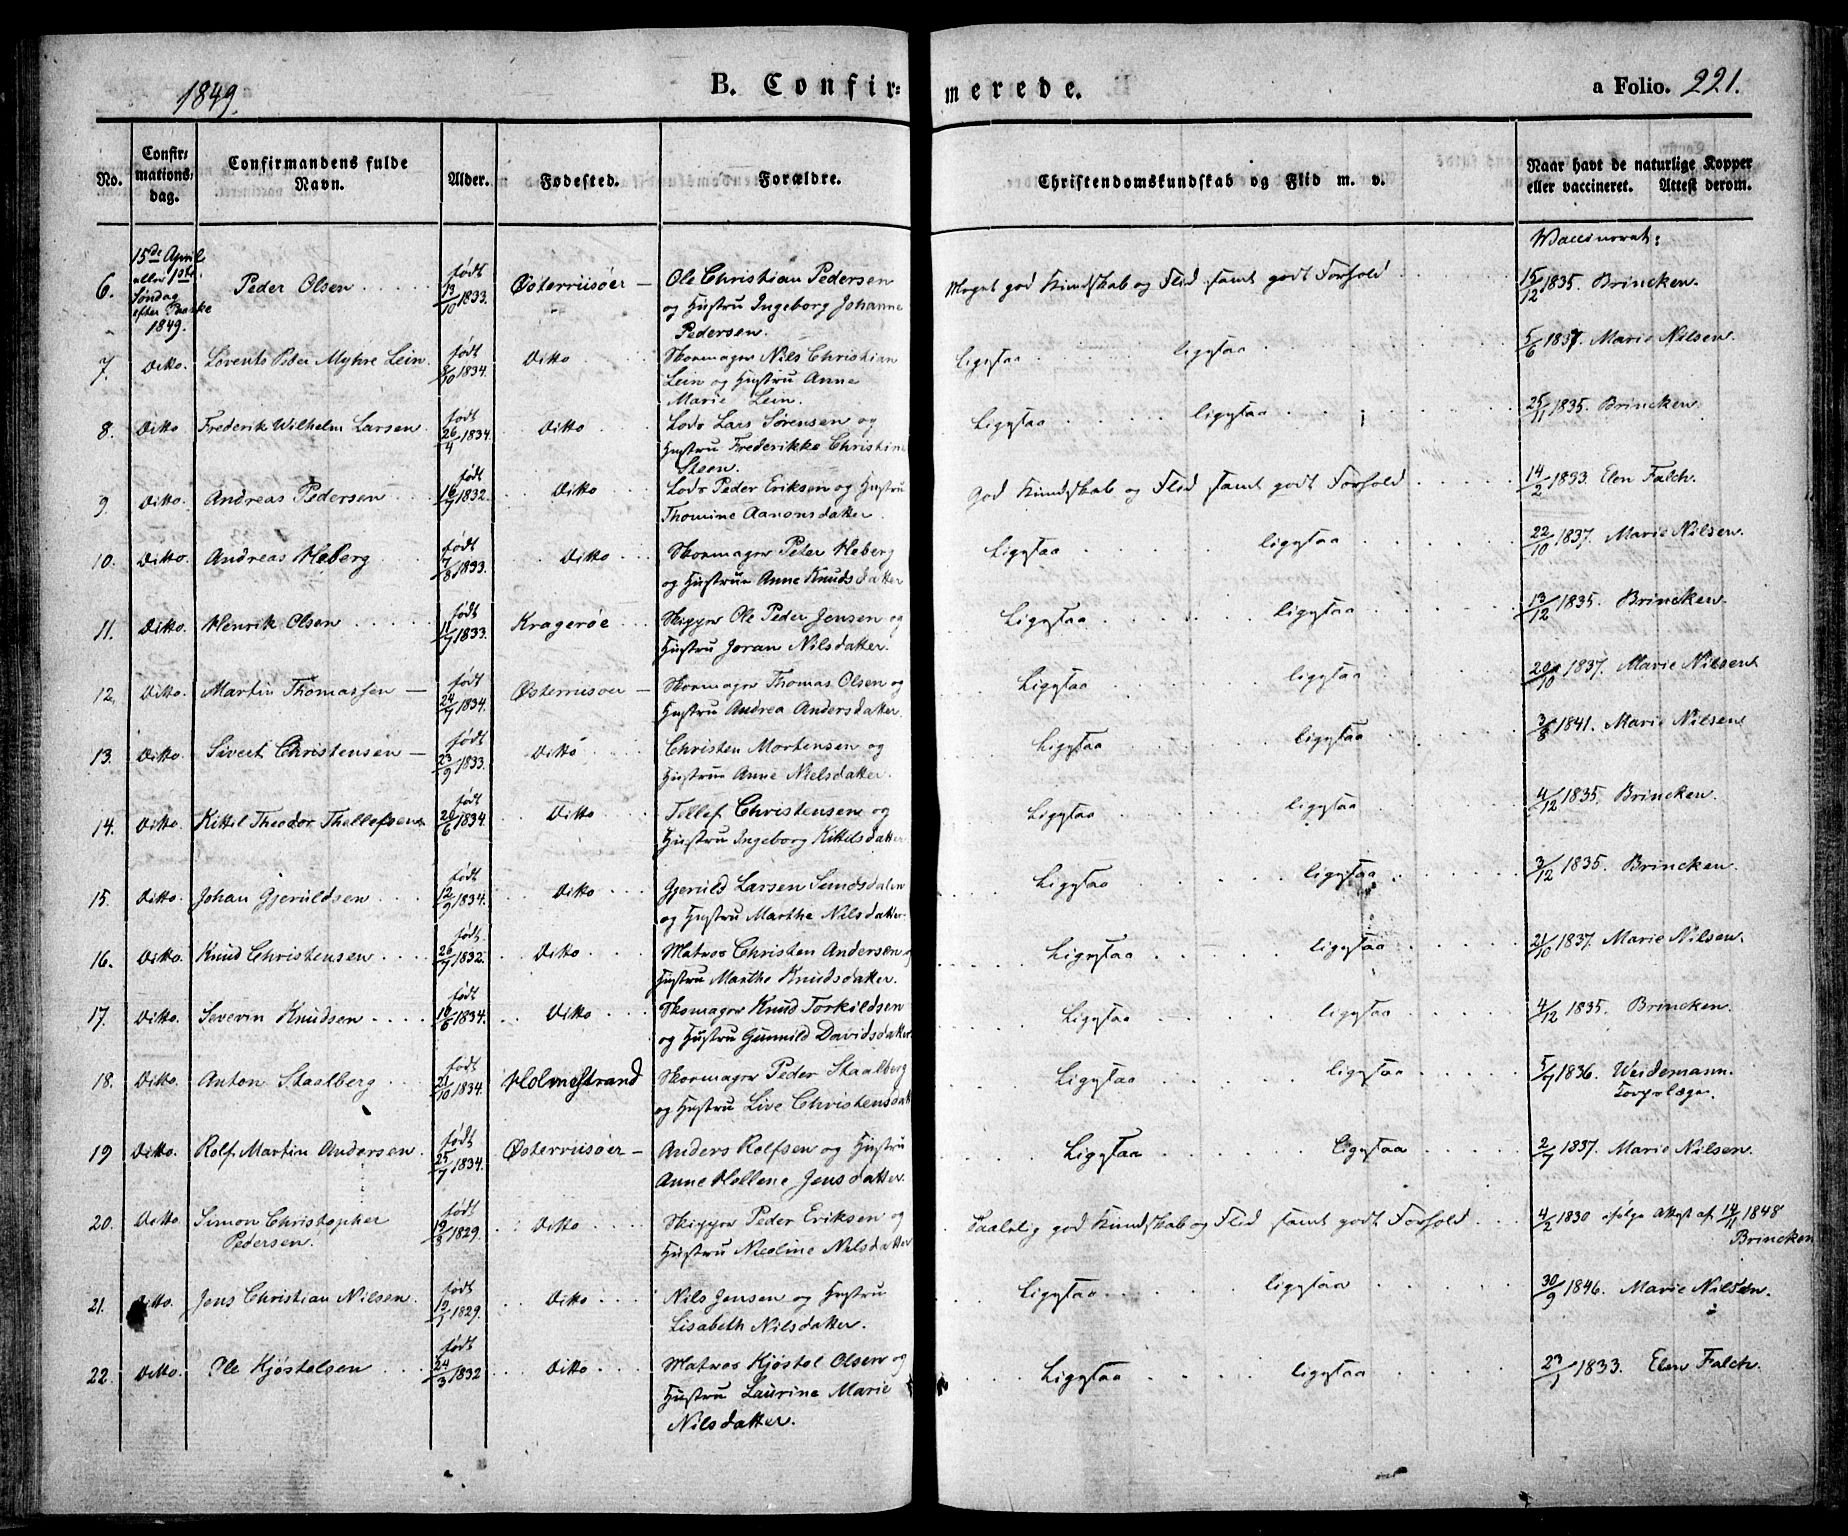 1849.
B. Confir=
merede.
a Folio. 221.
No.
Confir=
mations=
dag.
Confirmandens fulde
Navn.
Alder.
Fødested.
Forældre.
Christendomskundskab og Flid m. v.
Naar havt de naturlige Kopper
eller vaccineret. Attest derom.
6. 15de April
eller 1ste
Søndag
efter Paaske
1849.
Peder Olsen
født
13/10 1833.
Østerriisöer
Ole Christian Pedersen
og Hustru Ingeborg Johanne
Pedersen.
Meget god Kundskab og Flid samt godt Forhold
Vaccineret:
15/12 1835. Brincken.
7. Ditto. Lovents Peter Myhre Lein.
født
8/10 1834.
Ditto
Skomager Nils Christian
Lein og Hustru Anne
Marie Lein.
Ligesaa ligesaa
5/6 1837. Marie Nilsen.
8. Ditto Frederik Wilhelm Larsen
født
26/4 1834.
Ditto
Lods Lars Sørensen og
Hustru Frederikke Christine
Steen.
Ligesaa ligesaa
25/11 1835. Brincken
9. Ditto. Andreas Pedersen
født
16/9 1832.
Ditto
Lods Peder Eriksen og Hustru
Thomine Aanonsdatter
God Kundskab og Flid samt godt Forhold
14/2 1833. Elen Falch.
10. Ditto. Andreas Heberg
født
7/8 1833.
Ditto
Skomager Peter Heberg
og Hustrue Anne Knudsdatter
Ligesaa ligesaa
22/10 1837. Marie Nilsen.
11. Ditto. Henrik Olsen
født
11/9 1833.
Kragerøe
Skipper Ole Peder Jensen og
Hustru Joran Nilsdatter.
Ligesaa ligesaa
13/12 1835. Brincken.
12. Ditto. Martin Thomassen
født
24/9 1834.
Østerriisöer
Skomager Thomas Olsen og
Hustru Andrea Andersdatter.
Ligesaa ligesaa
20/10 1837. Marie Nilsen
13. Ditto. Sivert Christensen
født
23/9 1833.
Ditto
Christen Mortensen og
Hustrue Anne Nielsdatter.
Ligesaa ligesaa
3/8 1841. Marie Nilsen
14. Ditto. Kittil Theodor Thellefsen
født
20/6 1834.
Ditto
Tellef Christensen og
Hustru Ingeborg Kittilsdatter
Ligesaa ligesaa
4/12 1835. Brincken.
15. Ditto. Johan Gjeruldsen
født
12/9 1834.
Ditto
Gjeruld Larsen Sundsdalen
og Hustru Marthe Nilsdatter.
Ligesaa ligesaa
3/12 1835. Brincken.
16. Ditto. Knud Christensen
født
26/7 1832.
Ditto
Matros Christen Andersen og
Hustru Marthe Knudsdatter.
Ligesaa ligesaa
21/10 1837. Marie Nilsen.
17. Ditto. Severin Knudsen
født
16/6 1834.
Ditto
Skomager Knud Torkildsen
og Hustru Gunnild Davidsdatter
Ligesaa ligesaa
4/12 1835. Brincken.
18. Ditto. Anton Staalberg
født
21/10 1834.
Holmestrand
Skomager Peder Staalberg
og Hustru Live Christensdatt
Ligesaa ligesaa
5/7 1836. Weidemann.
Corpslæge.
19 Ditto. Rolf Martin Andersen.
født
25/7 1834.
Østerriisöer
Anders Rolfsen og Hustru
Anne Hellene Jensdatter.
Ligesaa ligesaa
2/7 1837. Marie Nilsen.
20. Ditto. Simon Christopher
Pedersen.
født
19/8 1829.
Ditto
Skipper Peder Eriksen og
Hustru Nicoline Nilsdatter
Taalelig god Kundskab og Flid samt godt Forhold
4/2 1830 ifølge Attest af 14/11 1848
Brincken
21. Ditto. Jens Christian Nilsen.
født
19/1 1829.
Ditto
Nils Jensen og Hustru
Lisabeth Nilsdatter.
Ligesaa ligesaa
30/9 1846. Marie Nilsen.
22. Ditto. Ole Kjøstelsen
født
24/3 1832
Ditto
Matros Kjøstel Olsen og
Hustru Laurine Marie
Nilsdatter.
Ligesaa ligesaa
23/1 1833. Elen Falch.